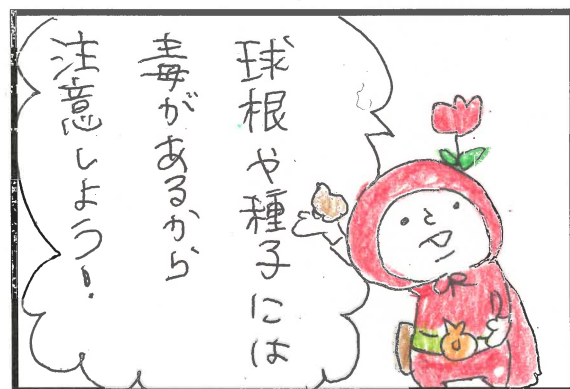 球根や種子には
毒があるから
注意しよう!